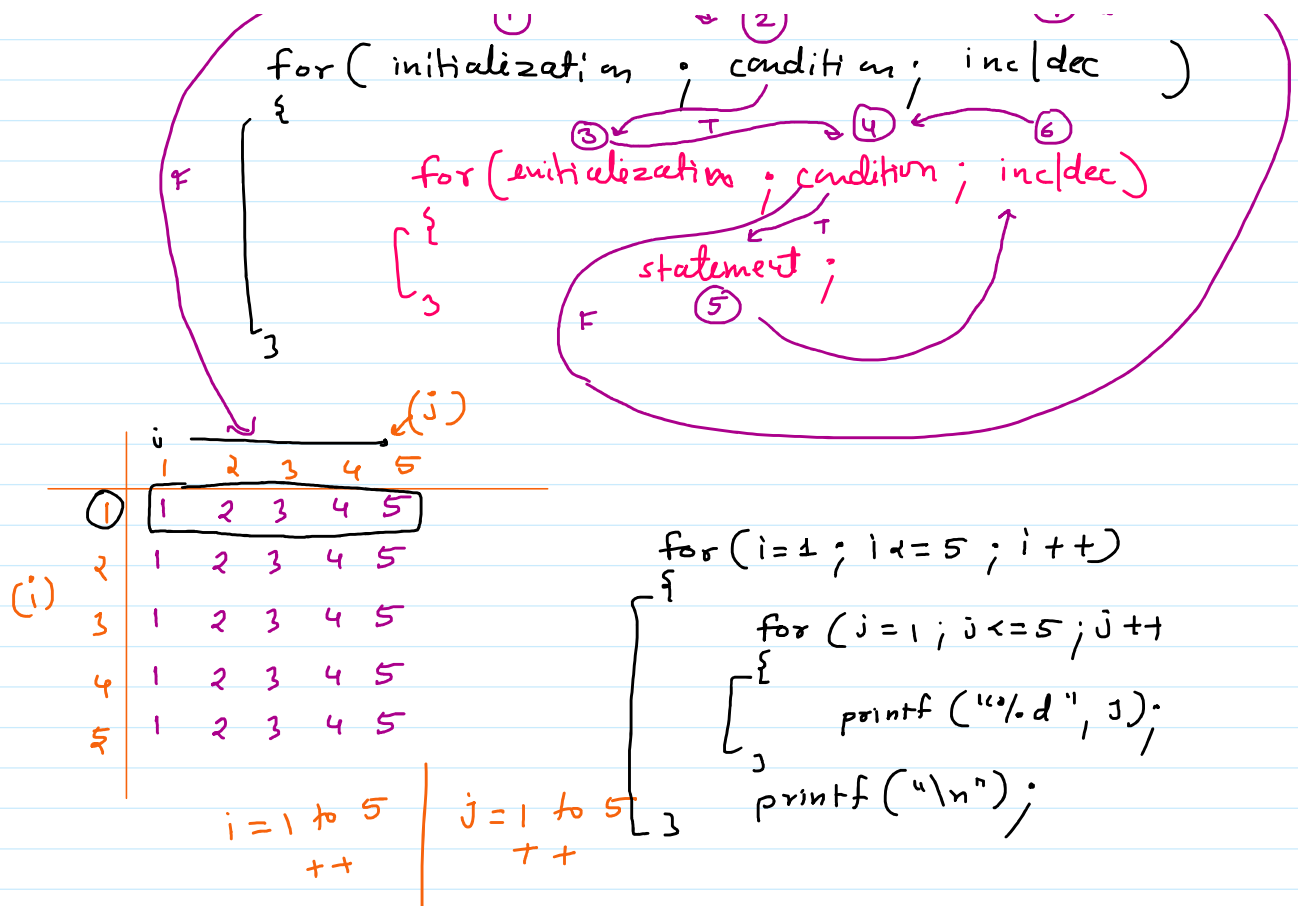 1 2
for ( initialization ; condition ; inc/dec )
{
3 T 4 6
for ( initialization ; condition ; inc/dec )
F
{
T
statement ;
}
F 5
}
(j)
j
1 2 3 4 5
1 1 2 3 4 5
2 1 2 3 4 5
(i)
3 1 2 3 4 5
4 1 2 3 4 5
5 1 2 3 4 5
i = 1 to 5
++
j = 1 to 5
++
for ( i = 1 ; i <= 5 ; i ++ )
{
for ( j = 1 ; j <= 5 ; j ++
{
printf ( "%d" , j ) ;
}
printf ( "\n" ) ;
}